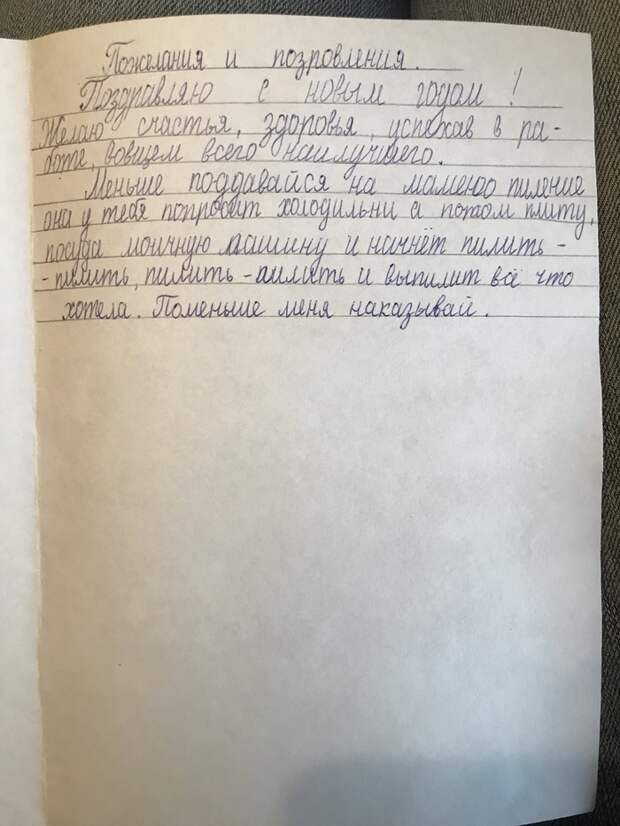 Пожелания и позровления.
Поздравляю с новым годом!
Желаю счастья, здоровья, успехав в ра-
боте, вовщем всего наилучшего.
Меньше поддавайся на мамено пиление
она у тебя попросит холодильни а потом плиту,
посуда моичную машину и начнёт пилить-
-пилить, пилить-пилить и выпилит всё что
хотела. Поменьше меня наказывай.